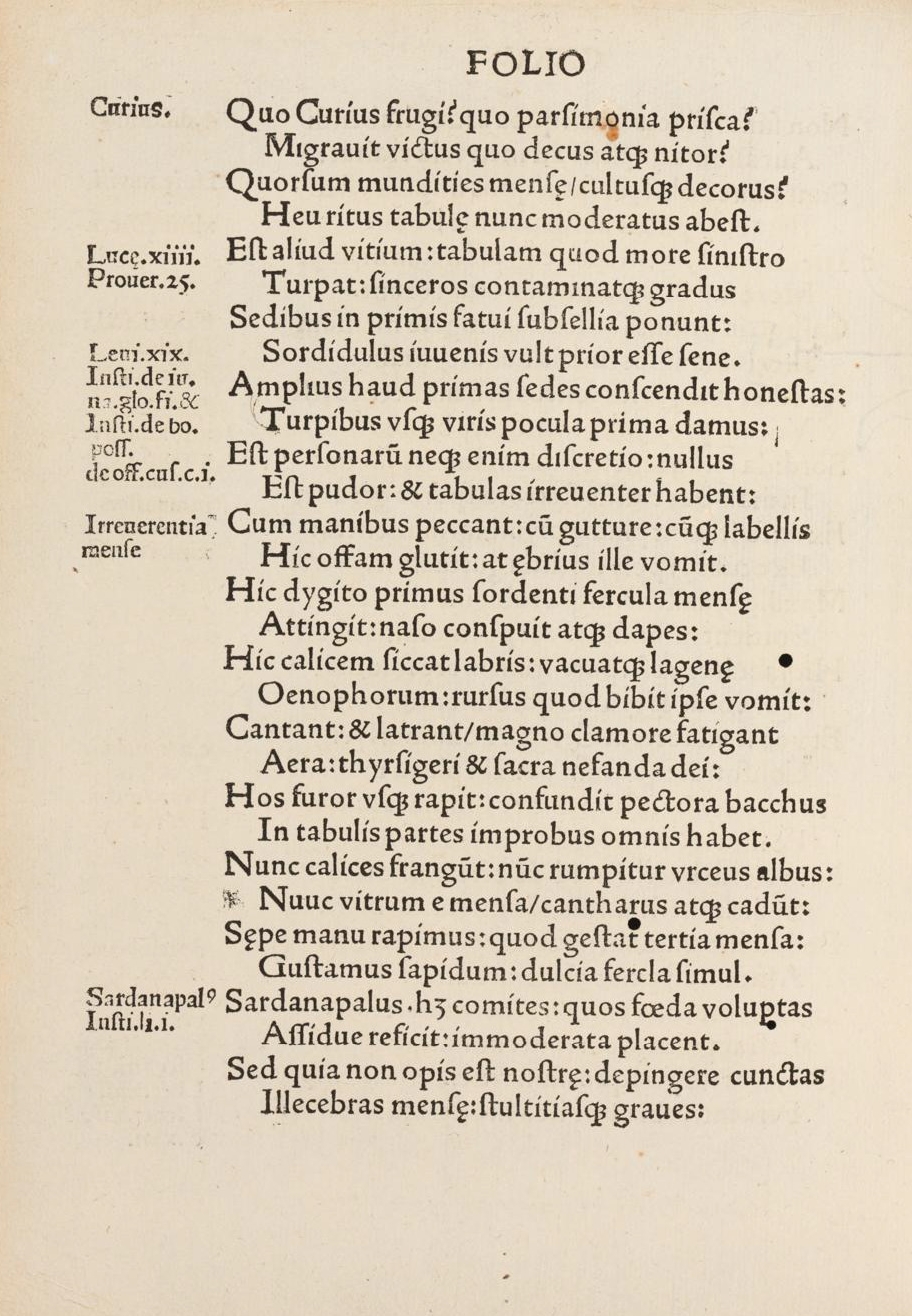 FOLIO
Curius.
Quo Curius frugi? quo parſimonia priſca?
Migrauit victus quo decus atqꝫ nitor?
Quorſum mundities menſę/cultuſqꝫ decorus?
Heu ritus tabulę nunc moderatus abeſt.
Lucę.xiiii.
Eſt aliud vitium: tabulam quod more ſiniſtro
Prouer.25.
Turpat: ſinceros contaminatqꝫ gradus
Sedibus in primis fatui ſubſellia ponunt:
Leui.xix.
Sordidulus iuuenis vult prior eſſe ſene.
Inſti.de iu.
Amplius haud primas ſedes conſcendit honeſtas:
na.glo.fi.&
Inſti.de bo.
Turpibus vſqꝫ viris pocula prima damus:
poſſ.
Eſt perſonarū neqꝫ enim diſcretio: nullus
de off.cuſ.c.i.
Eſt pudor: & tabulas irreuenter habent:
Irreuerentia
Cum manibus peccant: cū gutture: cūqꝫ labellis
menſe
Hic offam glutit: at ębrius ille vomit.
Hic dygito primus ſordenti fercula menſę
Attingit: naſo conſpuit atqꝫ dapes:
Hic calicem ſiccat labris: vacuatqꝫ lagenę
Oenophorum: rurſus quod bibit ipſe vomit:
Cantant: & latrant/magno clamore fatigant
Aera: thyrſigeri & ſacra nefanda dei:
Hos furor vſqꝫ rapit: confundit pectora bacchus
In tabulis partes improbus omnis habet.
Nunc calices frangūt: nūc rumpitur vrceus albus:
Nuuc vitrum e menſa/cantharus atqꝫ cadūt:
Sępe manu rapimus: quod geſtat tertia menſa:
Guſtamus ſapidum: dulcia fercla ſimul.
Sardanapalꝰ
Sardanapalus.hꝫ comites: quos fœda voluptas
Inſti.li.i.
Aſſidue reficit: immoderata placent.
Sed quia non opis eſt noſtrę: depingere cunctas
Illecebras menſę: ſtultitiaſqꝫ graues: